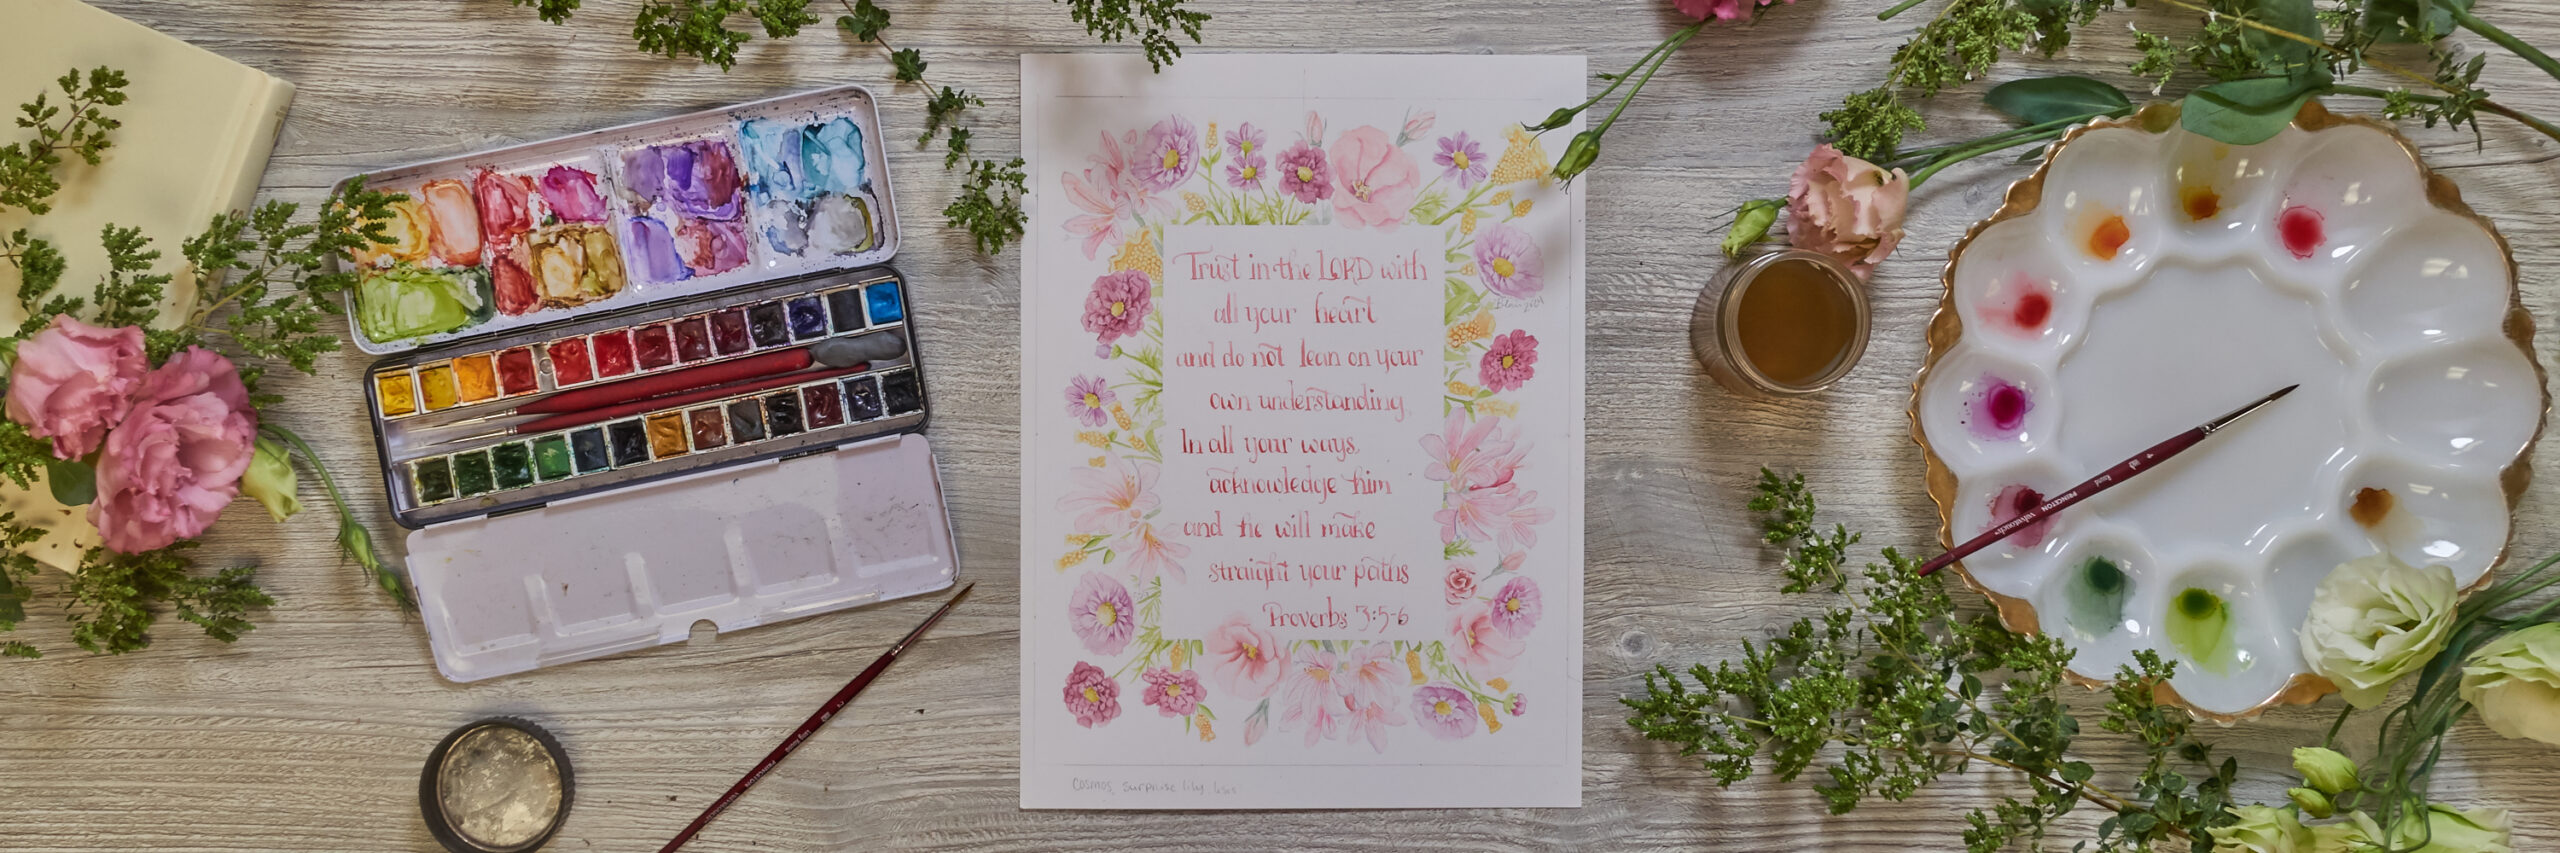 Trust in the LORD with
all your heart
and do not lean on your
own understanding,
In all your ways,
acknowledge him
and he will make
straight your paths
Proverbs 3:5-6
cosmos, surprise lily,
PRINCETON
Round
4
PRINCETON